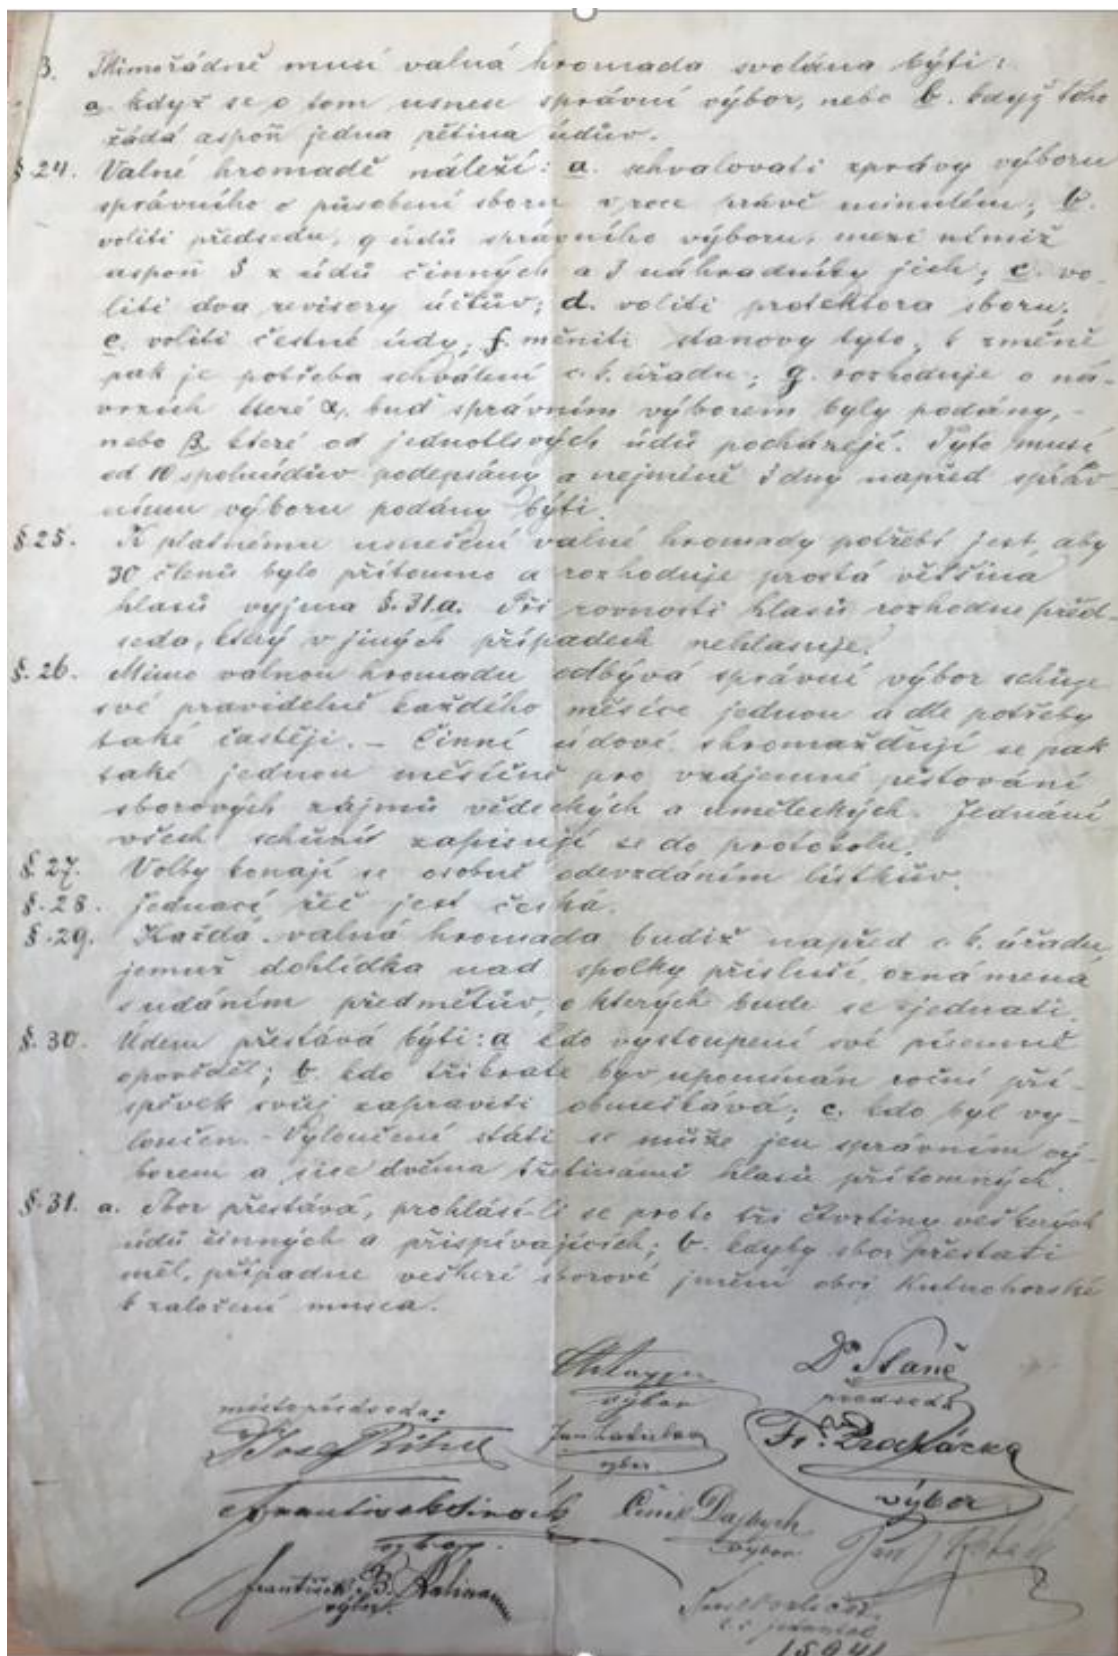 3. Mimořádně musí valná hromada svolána býti:
a. když se o tom usnese správní výbor, nebo b. když toho
žádá aspoň jedna pětina údův.
§.24. Valné hromadě náleží: a. schvalovati zprávy výboru
správního o působení sboru v roce právě minulém; b.
voliti předsedu, 9 údů správního výboru, mezi nimiž
aspoň 5 z údů činných a 3 náhradníky jich; c. vo-
liti dva revisory účtův; d. voliti protektora sboru;
e. voliti čestné údy; f. měniti stanovy tyto, k změně
pak je potřeba schválení c. k. úřadu; g. rozhoduje o ná-
vrzích které α. buď správním výborem byly podány, -
nebo β. které od jednotlivých údů pocházejí. Tyto musí
od 10 spoluúdův podepsány a nejméně 3 dny napřed správ-
nímu výboru podány býti.
§.25. K platnému usnešení valné hromady potřebí jest, aby
30 členů bylo přítomno a rozhoduje prostá většina
hlasů vyjma §.31.a. Při rovnosti hlasů rozhodne před-
seda, který v jiných případech nehlasuje.
§.26. Mimo valnou hromadu odbývá správní výbor schůze
své pravidelně každého měsíce jednou a dle potřeby
také častěji. – Činní údové shromažďují se pak
také jednou měsíčně pro vzájemné pěstování
sborových zájmů vědeckých a uměleckých. Jednání
všech schůzí zapisují se do protokolu.
§.27. Volby konají se osobně odevzdáním lístkův.
§.28. Jednací řeč jest česká.
§.29. Každá valná hromada budiž napřed c. k. úřadu,
jemuž dohlídka nad spolky přísluší, oznámena
s udáním předmětův, o kterých bude se jednati.
§.30. Údem přestává býti: a kdo vystoupení své písemně
opověděl; b. kdo třikráte byv upomínán roční pří-
spěvek svůj zapraviti obmeškává; c. kdo byl vy-
loučen. - Vyloučení státi se může jen správním vý-
borem a sice dvěma třetinami hlasů přítomných.
§.31. a. Sbor přestává, prohlásí-li se proto tři čtvrtiny veškerých
údů činných a přispívajících; b. kdyby sbor přestati
měl, připadne veškeré sborové jmění obci Kutnohorské
k založení musea.
Dr Staně
předseda
výbor
místopředseda:
Jan
výbor
Josef
Fr.
výbor
František
výbor.
Emil
výbor
Jan
František B.
výbor.
t. č. jednatel